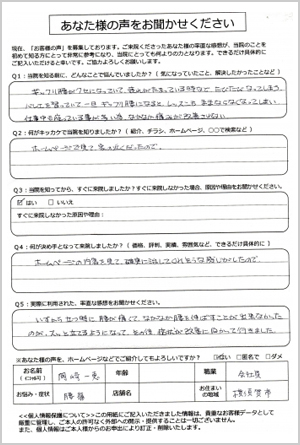 あなた様の声をお聞かせください
現在、「お客様の声」を募集しております。ご来院くださったあなた様の率直な感想が、当院のことを
初めて知る方にとって非常に参考になり、当院にとっても何よりの力となります。できるだけ具体的に
ご記入いただけると幸いです。ご協力よろしくお願いします。
Q1:当院を知る前に、どんなことで悩んでいましたか？（気になっていたこと、解決したかったことなど）
ギックリ腰がクセになっていて、
バレエを習っていて一旦ギックリ腰になると、
Q2:何がキッカケで当院を知りましたか？（紹介、チラシ、ホームページ、〇〇で検索など）
ホームページで見て、家から近くだったので、
Q3:当院を知ってから、すぐに来院しましたか？すぐに来院しなかった場合、原因や理由をお聞かせください。
☑はい □いいえ
すぐに来院しなかった原因や理由：
Q4:何が決め手となって来院しましたか？（価格、評判、実績、雰囲気など、できるだけ具体的に）
ホームページの内容を見て、確実に治してくれそうな感じがしたので
Q5:実際に利用された、率直な感想をお聞かせください。
いすから立つ時に腰が痛くて、なかなか腰を伸ばすことが出来なかった
のが、スッと立てるようになって、その後、症状が改善に向かって行きました。
※あなた様の声を、ホームページなどでご紹介してもよろしいですか？ ☑はい □匿名で □ダメ
お名前
（イニシャル可）
年齢
職業
会社員
お悩み・症状
腰痛
店舗名
お住まい
の地域
横須賀市
<<個人情報保護について>>この用紙にご記入いただきました情報は、貴重なお客様データとして
厳重に管理し、ご本人の許可なく外部への開示・提供することは一切ございません。
また、個人情報はご本人様からのお申出により訂正・削除いたします。